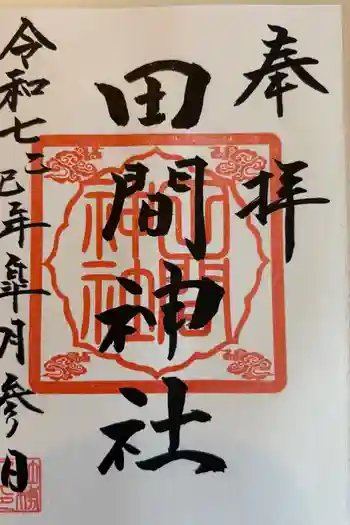 奉拝
田間神社
令和七乙巳年皐月参日
田間
神社